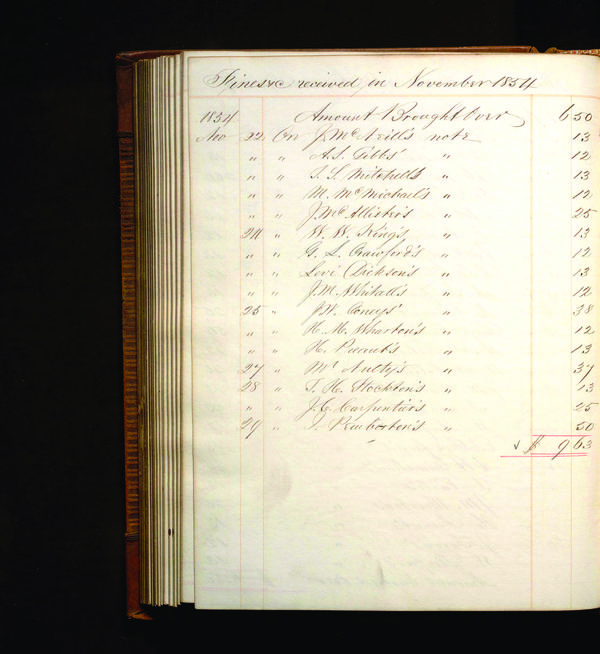 Fines &c received in November 1854
1854 Amount Brought Over 6 50
Nov 22 On J. McNeill's note 13
" " A. S. Gibbs' " 12
" " S. S. Mitchell's " 13
" " M. McMichael's " 12
" " J. McAllister's " 25
24 " W. W. King's " 13
" " G. L. Crawford's " 12
" " Levi Dickson's " 13
" " J. M. Whitall's " 12
25 " J. W. " 38
" " H. M. Wharton's " 12
" " H. " 13
27 " McAnlty's " 37
28 " T. H. Stockton's " 13
" " J. C. Carpentier's " 25
29 " J. Pemberton's " 50
$ 9 63